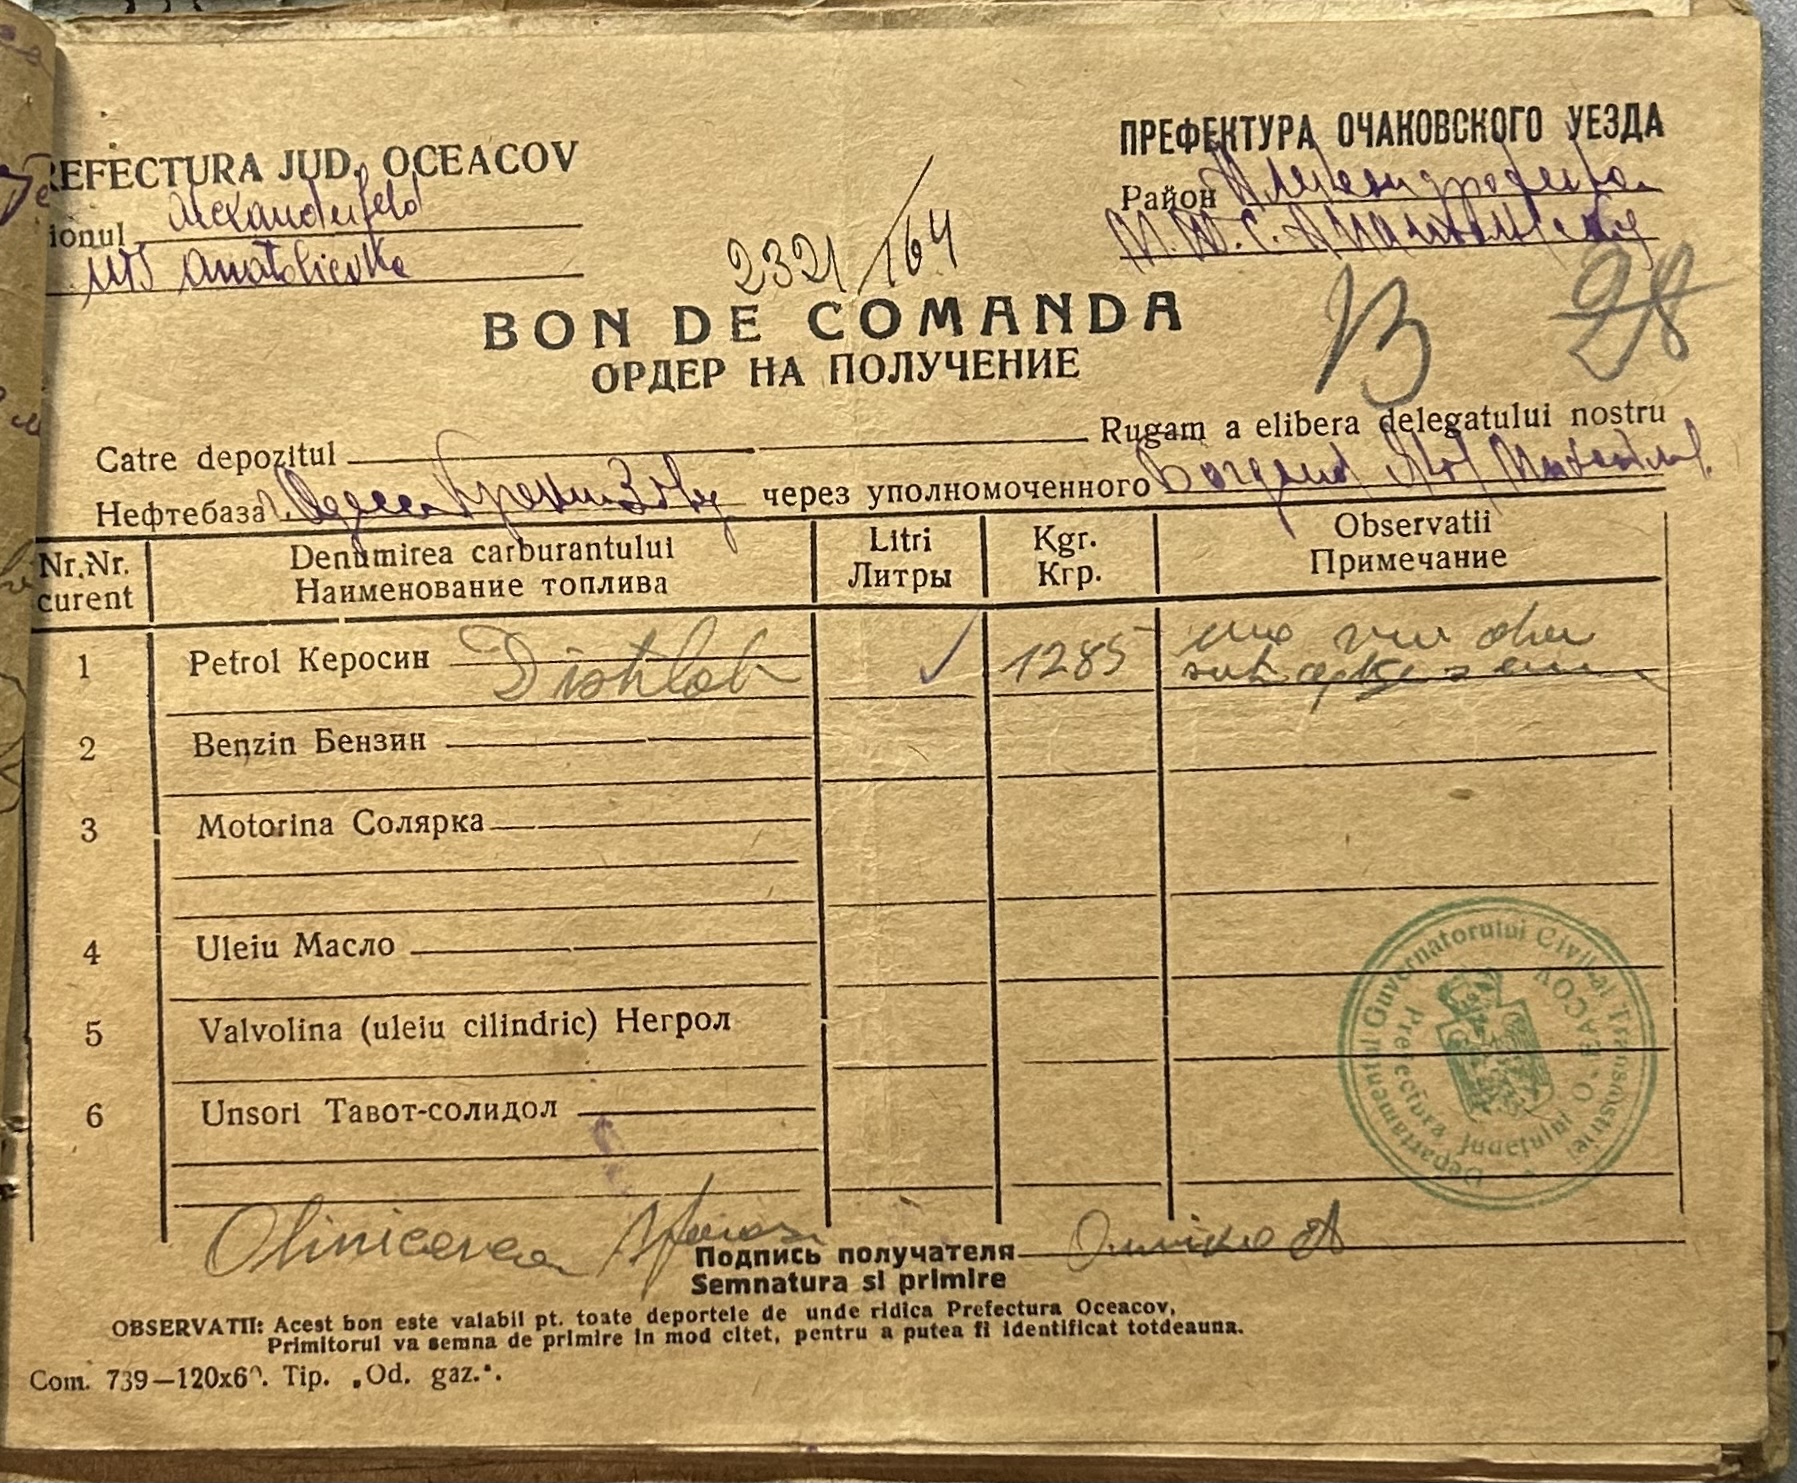 REFECTURA JUD. OCEACOV
ПРЕФЕКТУРА ОЧАКОВСКОГО УЕЗДА
ionul Alexanderfeld
Район
MTS Anatolievka
М.Т.С. Анатольевку
2321/164
BON DE COMANDA
ОРДЕР НА ПОЛУЧЕНИЕ
B 28
Catre depozitul Rugam a elibera delegatului nostru
Нефтебаза Одесса через уполномоченного
Nr. Nr. curent
Denumirea carburantului
Наименование топлива
Litri
Литры
Kgr.
Кгр.
Observatii
Примечание
1 Petrol Керосин Distilat 1285 una mie
2 Benzin Бензин
3 Motorina Солярка
4 Uleiu Масло
5 Valvolina (uleiu cilindric) Негрол
6 Unsori Тавот-солидол
Departamentul Guvernatorului Civil al Transnistriei
Prefectura Județului OCEACOV
Подпись получателя
Semnatura si primire
OBSERVATII: Acest bon este valabil pt. toate deportele de unde ridica Prefectura Oceacov,
Primitorul va semna de primire in mod citet, pentru a putea fi identificat totdeauna.
Com. 739—120x6 . Tip. „Od. gaz.".